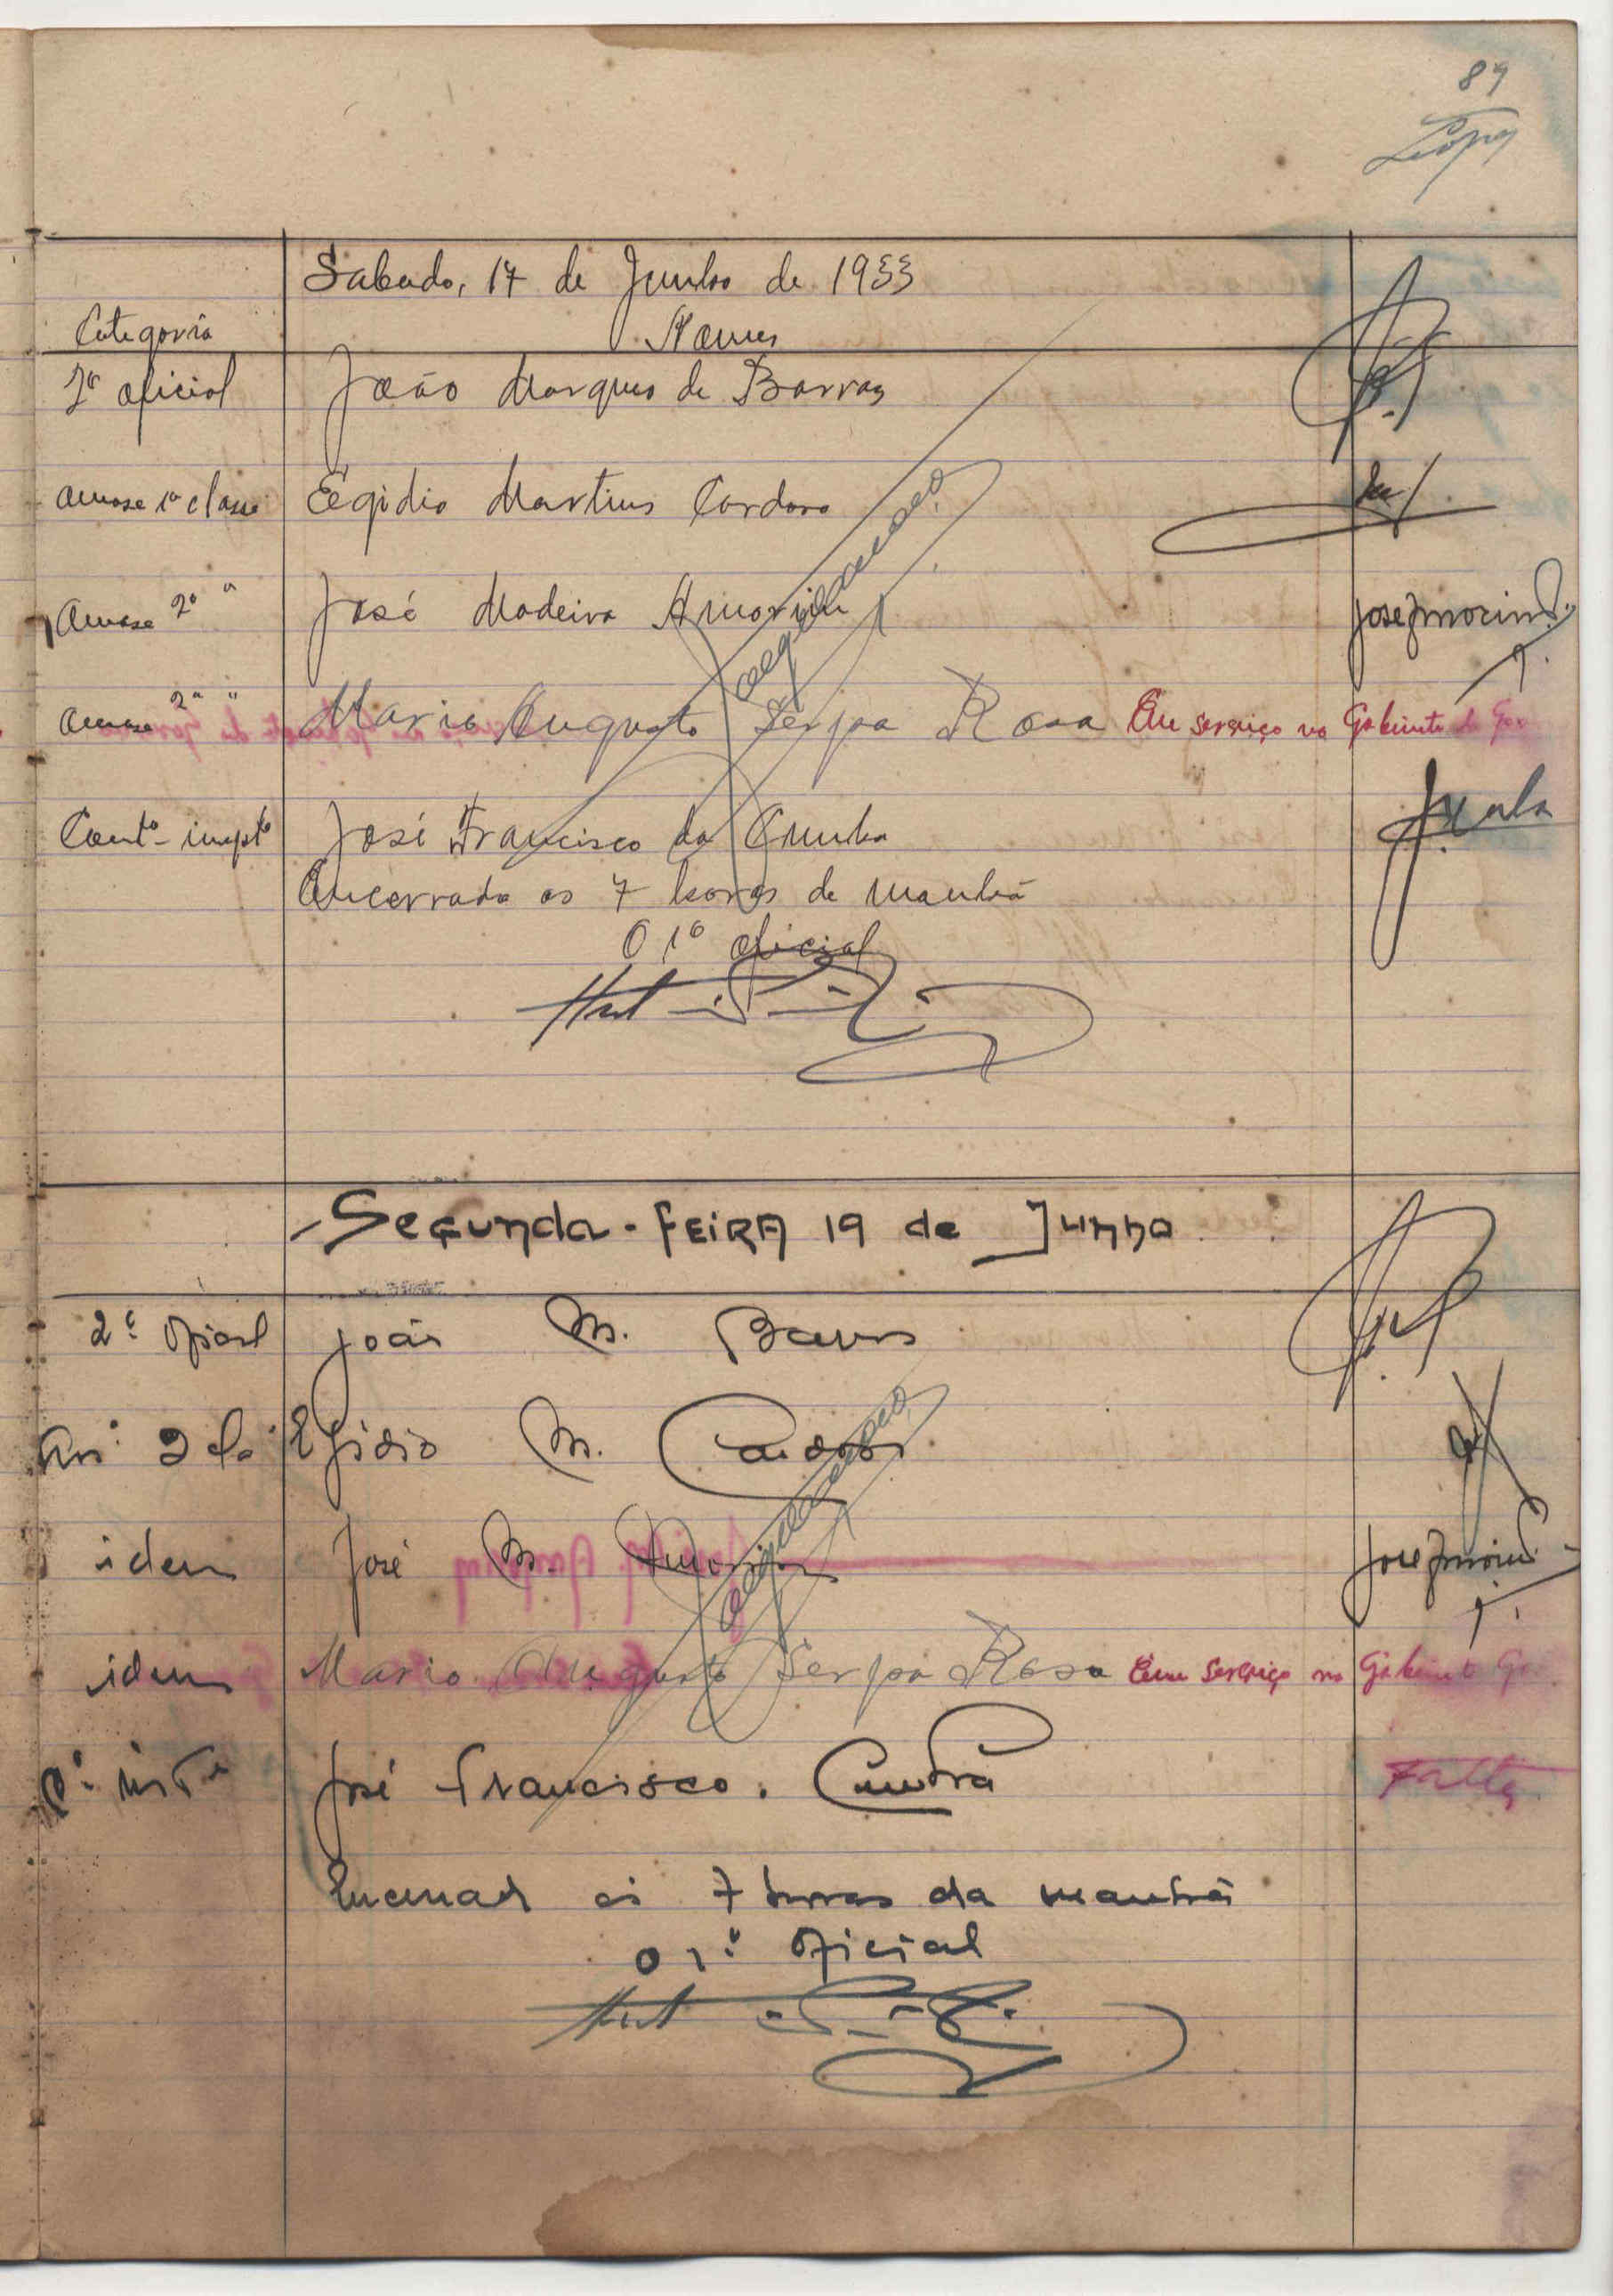 89
Lopes
Sabado, 17 de Junho de 1933
Categoria Nomes
2º oficial João Marques de Barros
Amase 1ª classe Egidio Martins Cardoso
Amase 2ª " José Madeira Amorim José Amorim
Amase 2ª " Mario Augusto Serpa Rosa Em serviço no Gabinete do Gov
José Francisco da Cunha
Encerrado as 7 horas da manhã
O 1º oficial
Segunda-feira 19 de Junho
2º Oficial João M. Barros
Egidio M. Cardoso
idem José M. Amorim José Amorim
idem Mario Augusto Serpa Rosa Em serviço no Gabinete Go
José Francisco. Cunha Falta
Encerrado ás 7 horas da manhã
O 1º Oficial